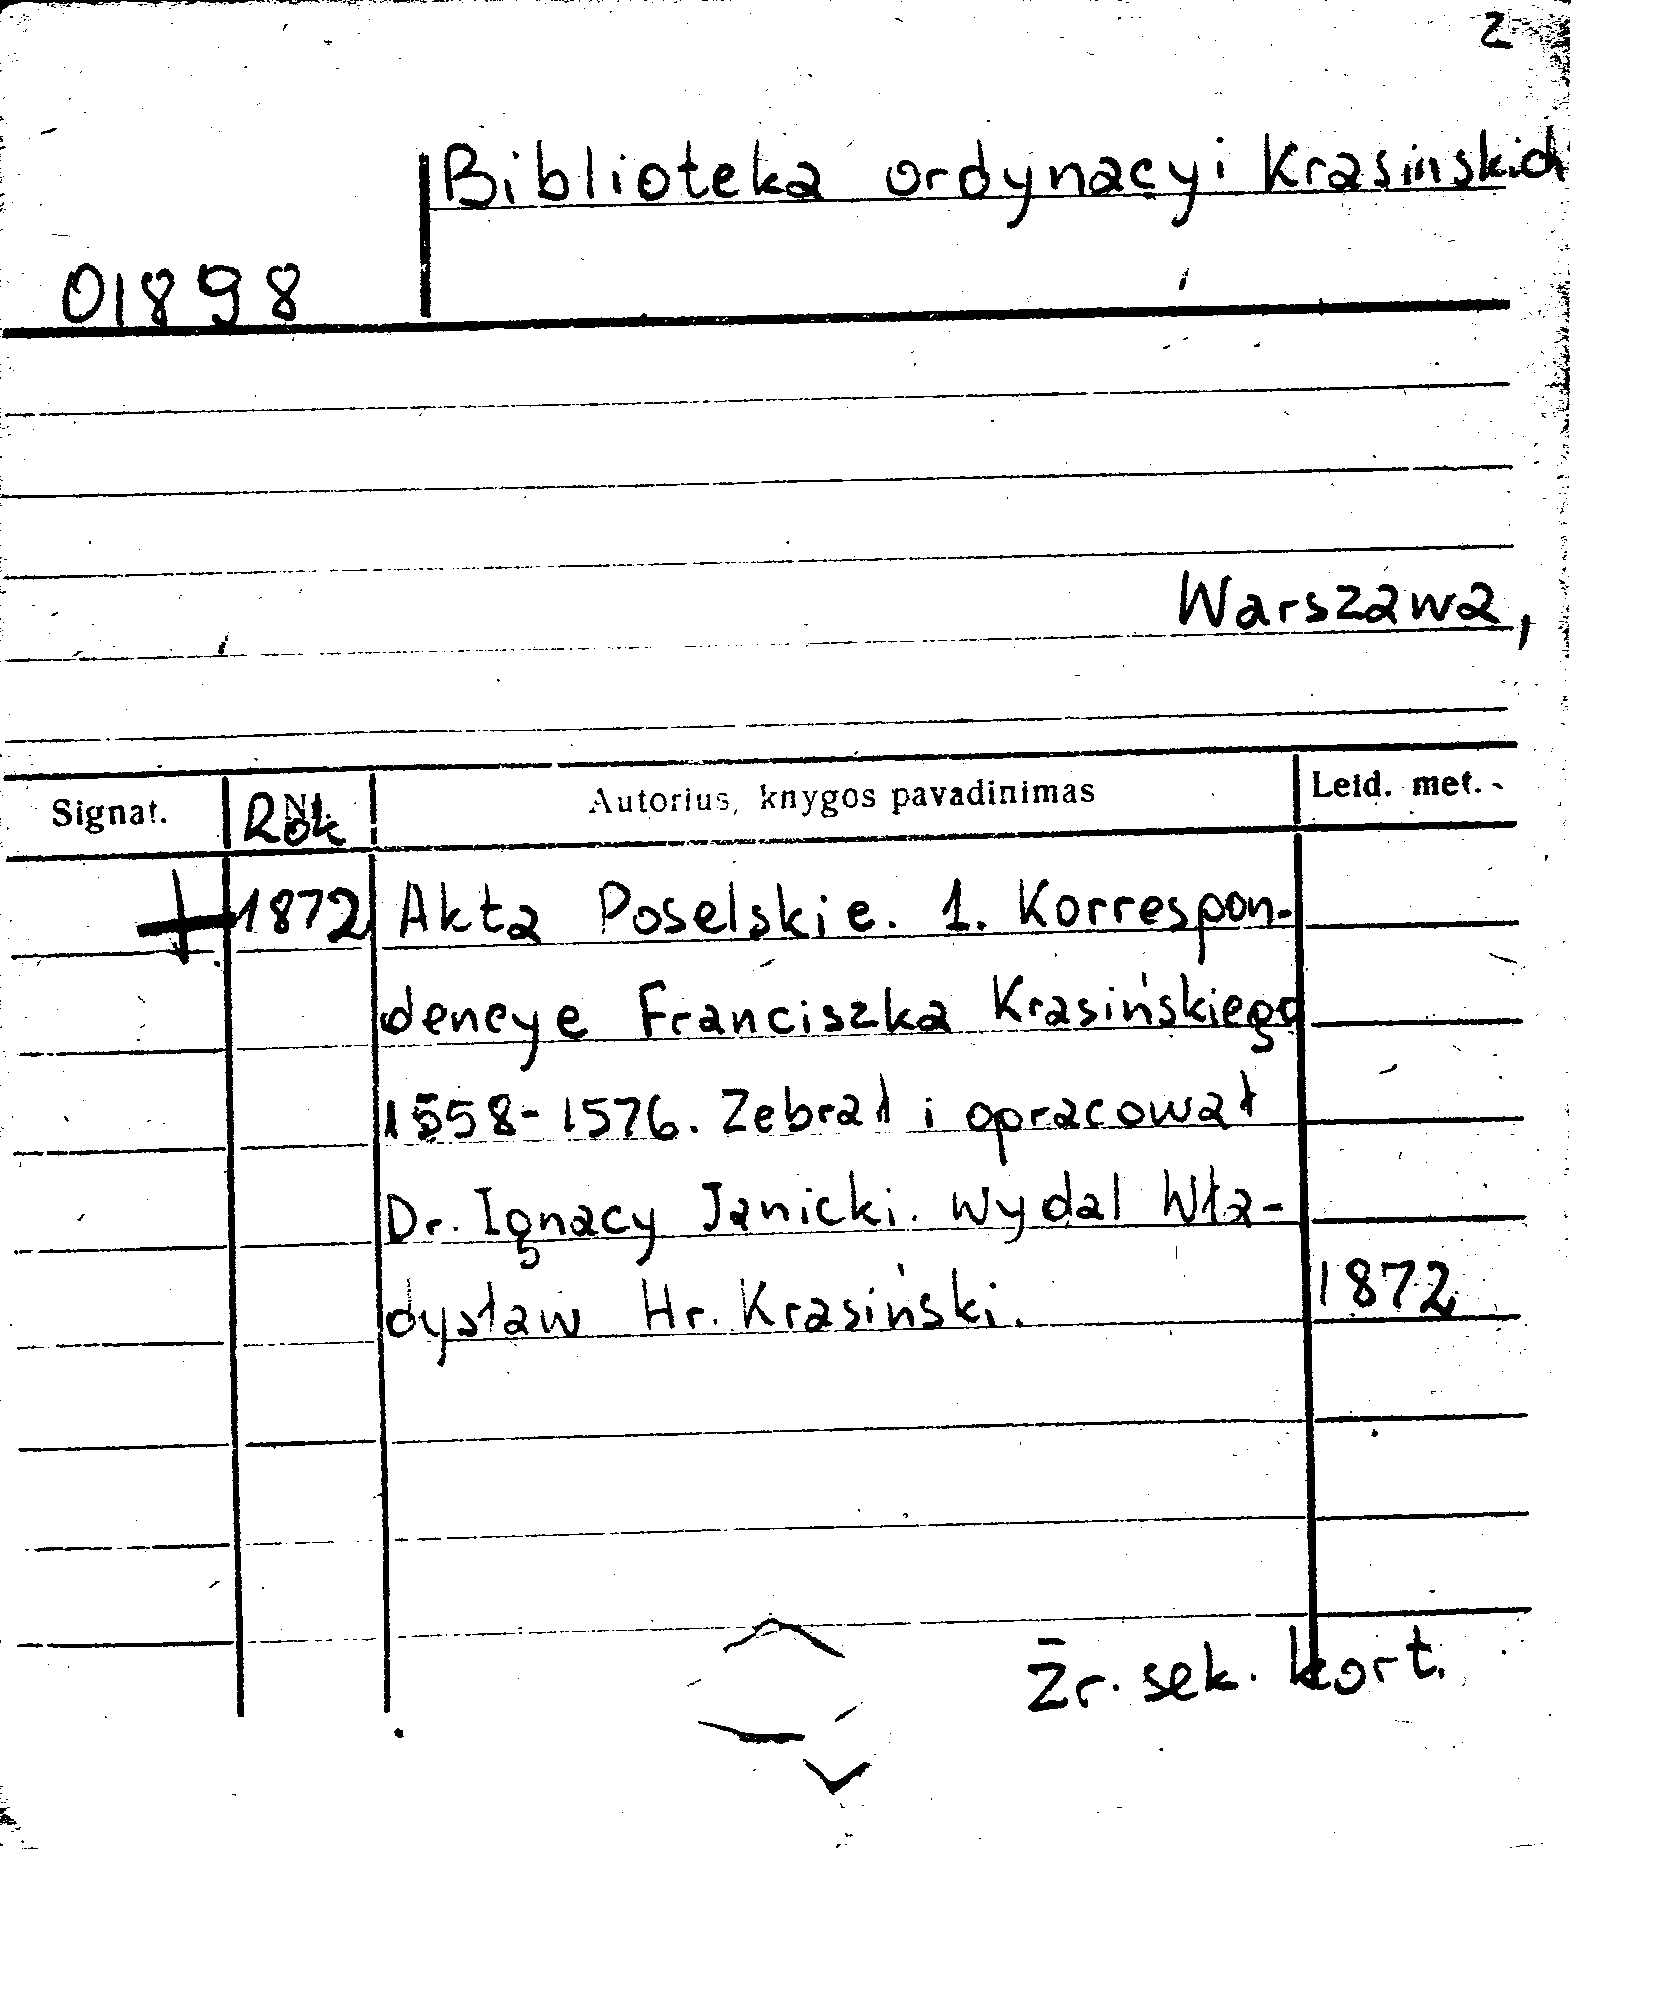 2
Biblioteka ordynacyi Krasinskich
01898
Warszawa,
Signat. Nr. Rok Autorius, knygos pavadinimas Leid. met.
1872 Akta Poselskie. 1. Korrespon-
dencye Franciszka Krasińskiego
1558-1576. Zebrał i opracował
Dr. Ignacy Janicki. Wydal Wła-
dysław Hr. Krasiński. 1872
Žr. sek. kort.